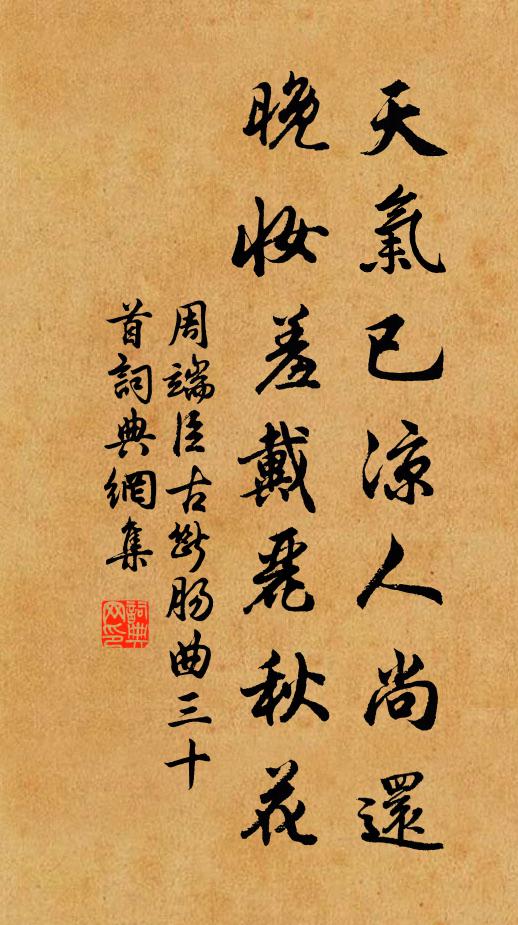 天氣已涼人尚還
晚妝羞戴麗秋花
周端臣古斷腸曲三十
首詞典網集
詞典网印